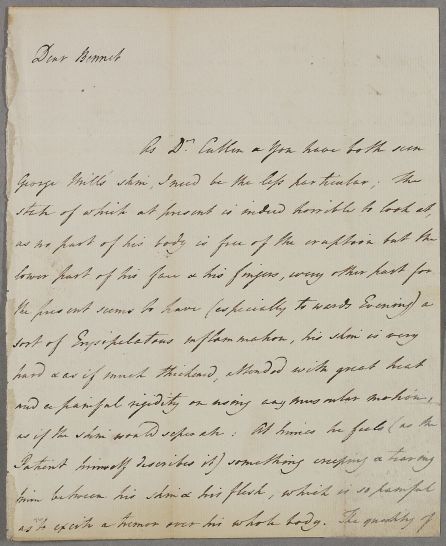 Dear Bennet
As Dr. Cullen & you have both seen
George Mill's skin, I need be the less particular; The
state of which at present is indeed horrible to look at,
as no part of his body is free of the eruption but the
lower part of his face & his fingers, every other part for
the present seems to have (especially towards Evening) a
sort of Erysipelatous inflammation, his skin is very
hard & as if much thickened, attended with great heat
and a painful rigidity on using any muscular motion,
as if the skin would seperate: At times he feels (as the
Patient himself describes it) something creeping & tearing
him between his skin & his flesh, which is so painful
as to excite a tremor over his whole body. The quantity of